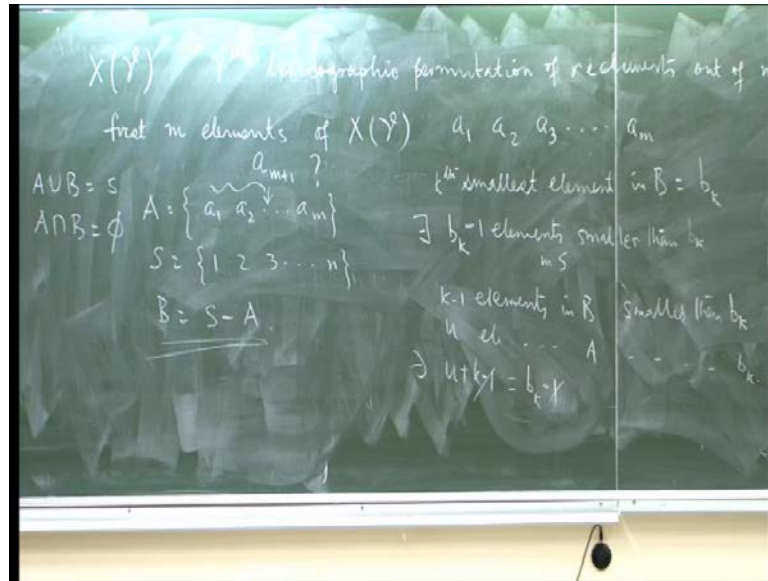 X(γ) lexicographic permutation of r elements out of n
first m elements of X(γ) a₁ a₂ a₃ .... aₘ
aₘ₊₁ ?
A∪B = S
A∩B = ϕ
A = { a₁ a₂ ... aₘ }
S = { 1 2 3 .... n }
B = S - A
kᵗʰ smallest element in B = bₖ
∃ bₖ-1 elements smaller than bₖ
in S
k-1 elements in B smaller than bₖ
u el. .... A - - - - bₖ
∃ u+k-1 = bₖ-1